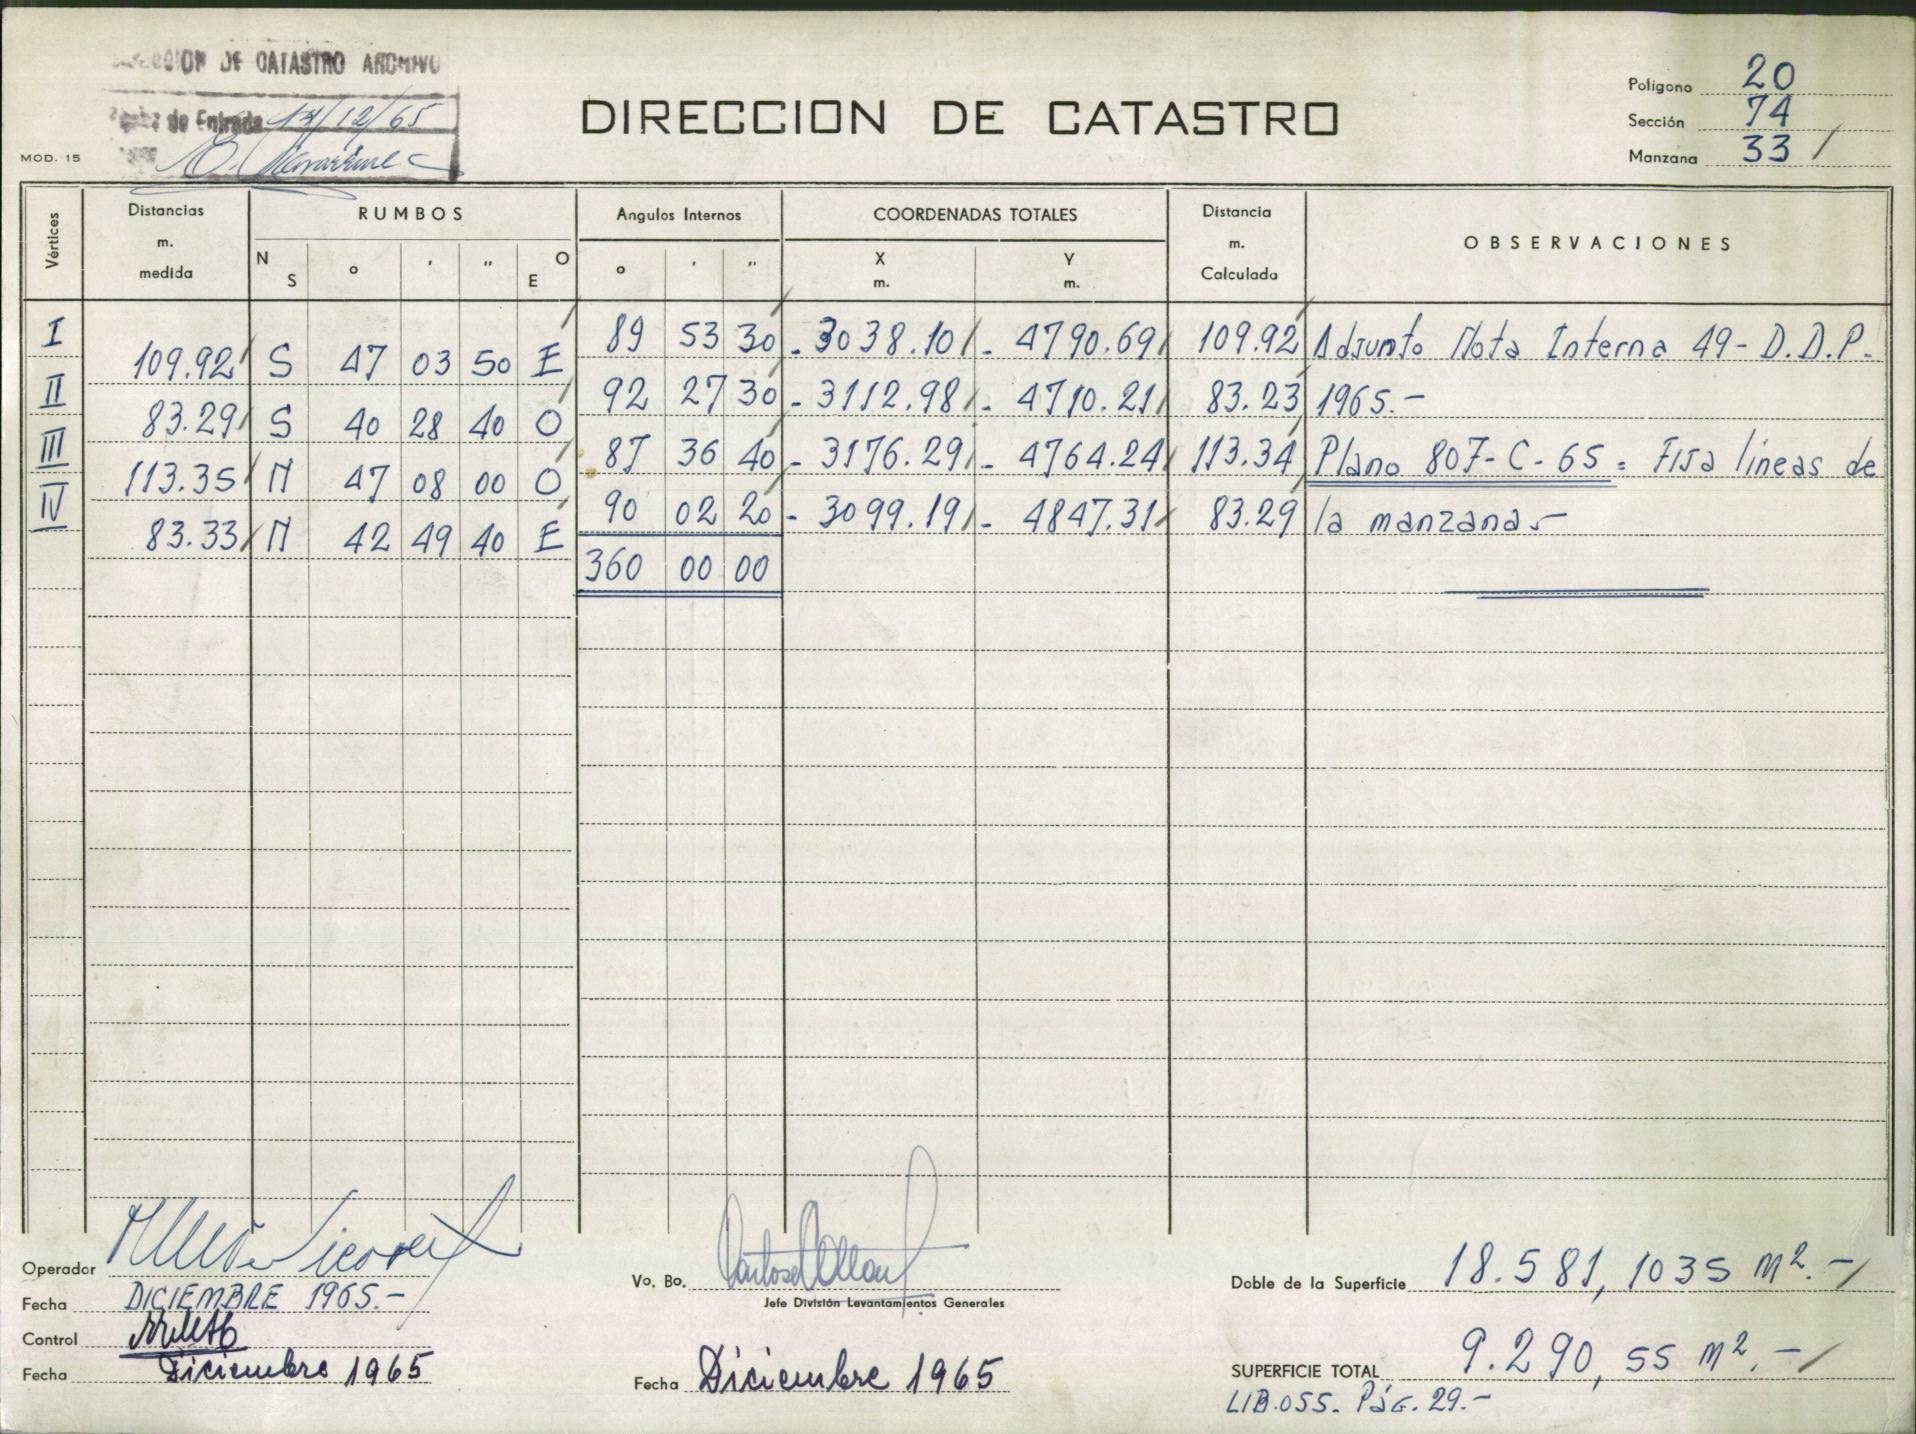 DE CATASTRO ARCHIVO
de Entrada 13/12/65
MOD. 15
DIRECCION DE CATASTRO
Polígono 20
Sección 74
Manzana 33
Vértices
Distancias m. medida
RUMBOS
N S ° ' " O E
Angulos Internos
° ' "
COORDENADAS TOTALES
X m. Y m.
Distancia m. Calculada
OBSERVACIONES
I 89 53 30 - 3038.10 - 4790.69 109.92 Adjunto Nota Interna 49- D.D.P.
109.92 S 47 03 50 E
II 92 27 30 - 3112.98 - 4710.21 83.23 1965.-
83.29 S 40 28 40 O
III 87 36 40 - 3176.29 - 4764.24 113.34 Plano 807-C-65 = Fija lineas de
113.35 N 47 08 00 O
IV 90 02 20 - 3099.19 - 4847.31 83.29 la manzana.-
83.33 N 42 49 40 E
360 00 00
Operador
Fecha DICIEMBRE 1965.-
Control
Fecha Diciembre 1965
Vo. Bo.
Jefe División Levantamientos Generales
Fecha Diciembre 1965
Doble de la Superficie 18.581,1035 m².-
SUPERFICIE TOTAL 9.290,55 m².-
LIB.055. Pág. 29.-